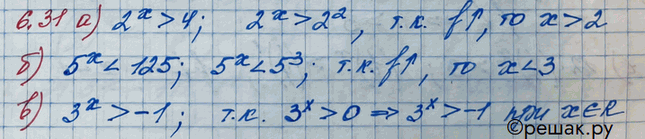 6.31 а) 2ˣ > 4; 2ˣ > 2², т.к. f↑, то x > 2
б) 5ˣ < 125; 5ˣ < 5³; т.к. f↑, то x < 3
в) 3ˣ > -1; т.к. 3ˣ > 0 ⇒ 3ˣ > -1 при x∈R
©решак.ру